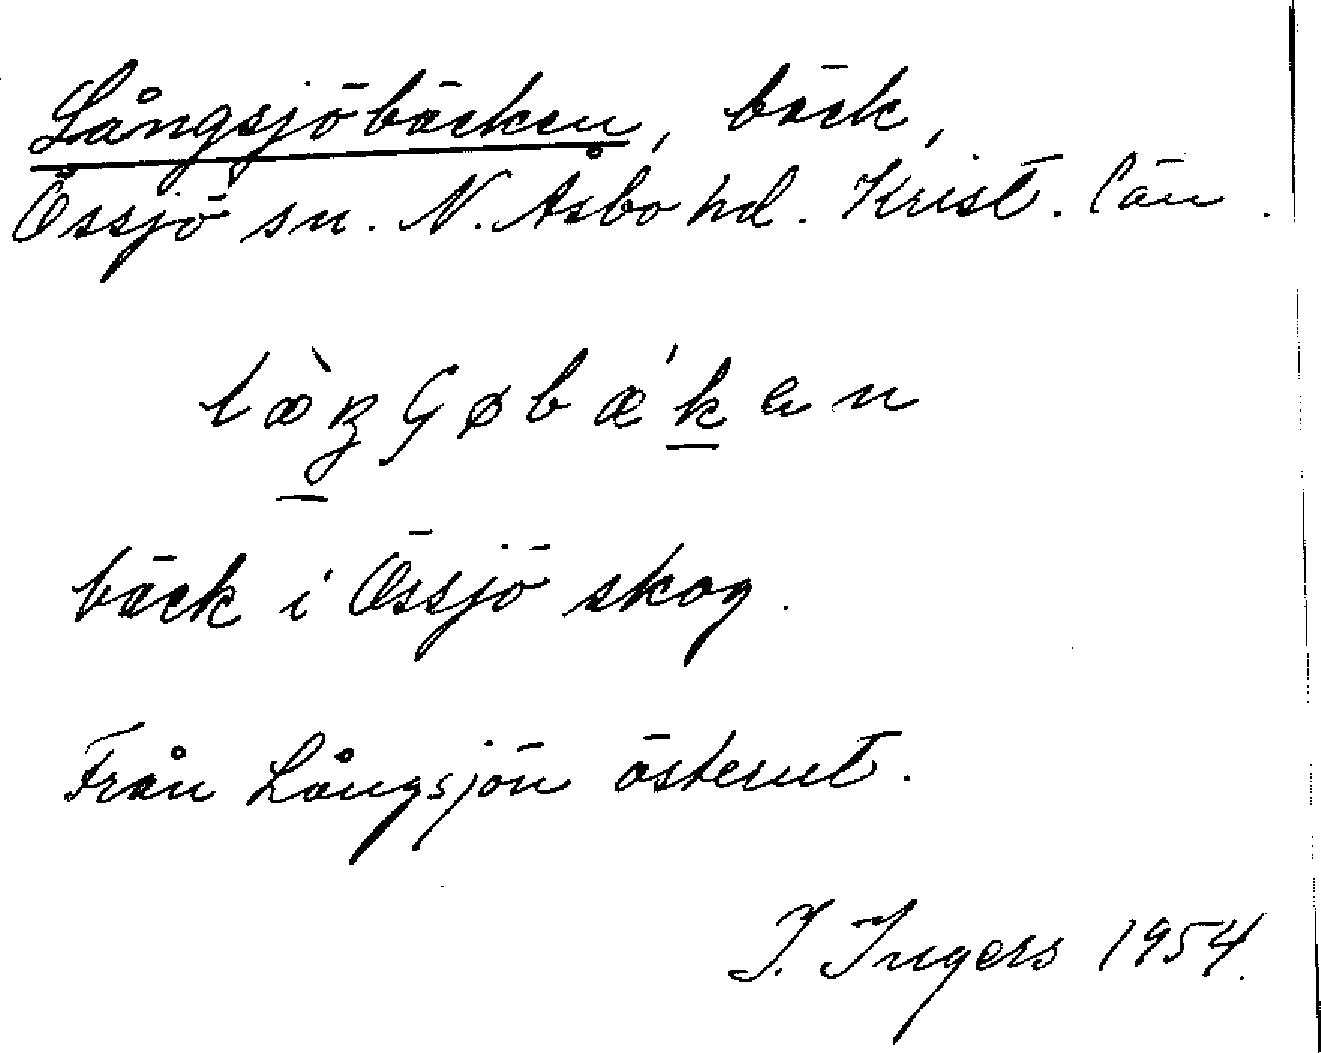 Långsjöbäcken, bäck,
Össjö sn. N. Åsbo hd. Krist. län.
bäck i Össjö skog.
Från Långsjön österut.
I. Ingers 1954.